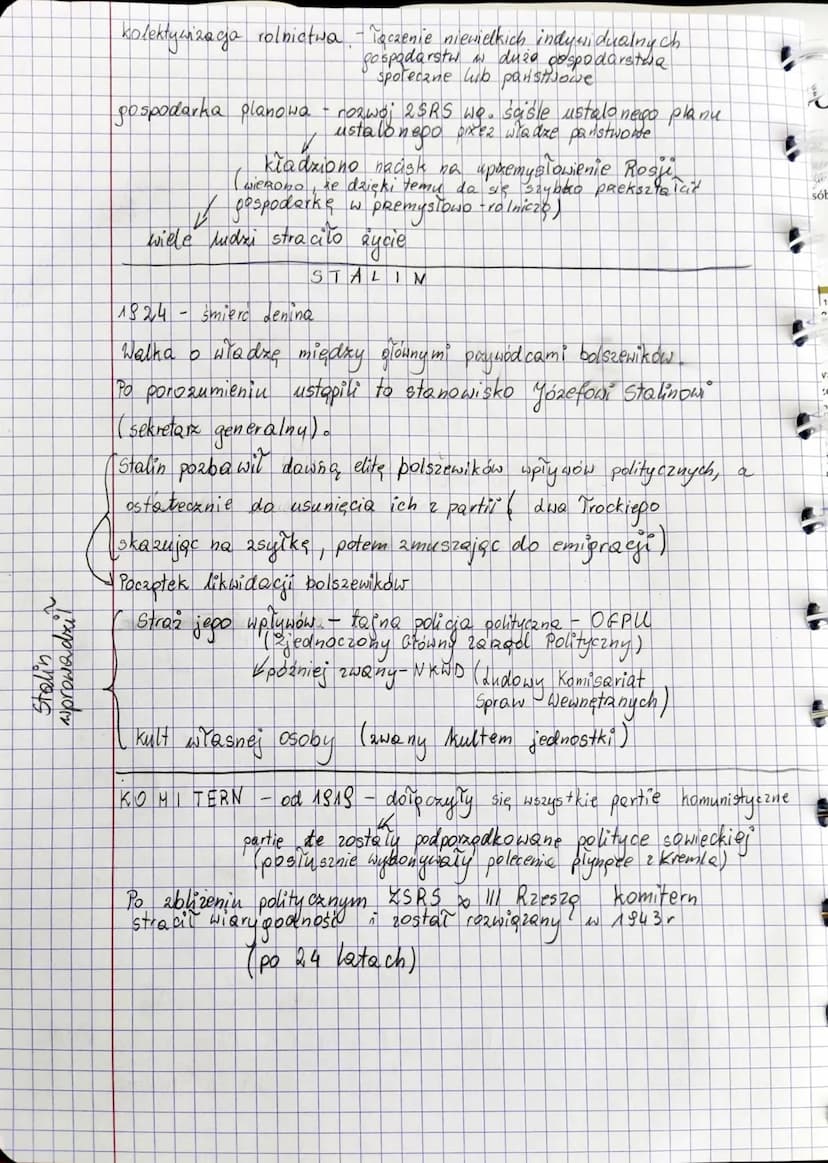 kolektywizacja rolnictwa - łączenie niewielkich indywidualnych
gospodarstw w duże gospodarstwa
społeczne lub państwowe
gospodarka planowa - rozwój ZSRS wg. ściśle ustalonego planu
ustalonego przez władze państwowe
kładziono nacisk na uprzemysłowienie Rosji
(wierzono, że dzięki temu da się szybko przekształcić
gospodarkę w przemysłowo-rolniczą)
wiele ludzi straciło życie
STALIN
1924 - śmierć Lenina
Walka o władzę między głównymi przywódcami bolszewików.
Po porozumieniu ustąpili to stanowisko Józefowi Stalinowi
(sekretarz generalny).
Stalin pozbawił dawną elitę bolszewików wpływów politycznych, a
ostatecznie do usunięcia ich z partii ( Lwa Trockiego
skazując na zsyłkę, potem zmuszając do emigracji)
Początek likwidacji bolszewików
Stalin
wprowadził
Straż jego wpływów - tajna policja polityczna - OGPU
(Zjednoczony Główny Zarząd Polityczny)
później zwany - NKWD (Ludowy Komisariat
Spraw Wewnętrznych)
kult własnej osoby (zwany kultem jednostki)
KOMITERN - od 1919 - dołączyły się wszystkie partie komunistyczne
partie te zostały podporządkowane polityce sowieckiej
(posłusznie wykonywały polecenia płynące z Kremla)
Po zbliżeniu politycznym ZSRS z III Rzeszą komitern
stracił wiarygodność i został rozwiązany w 1943 r
(po 24 latach)